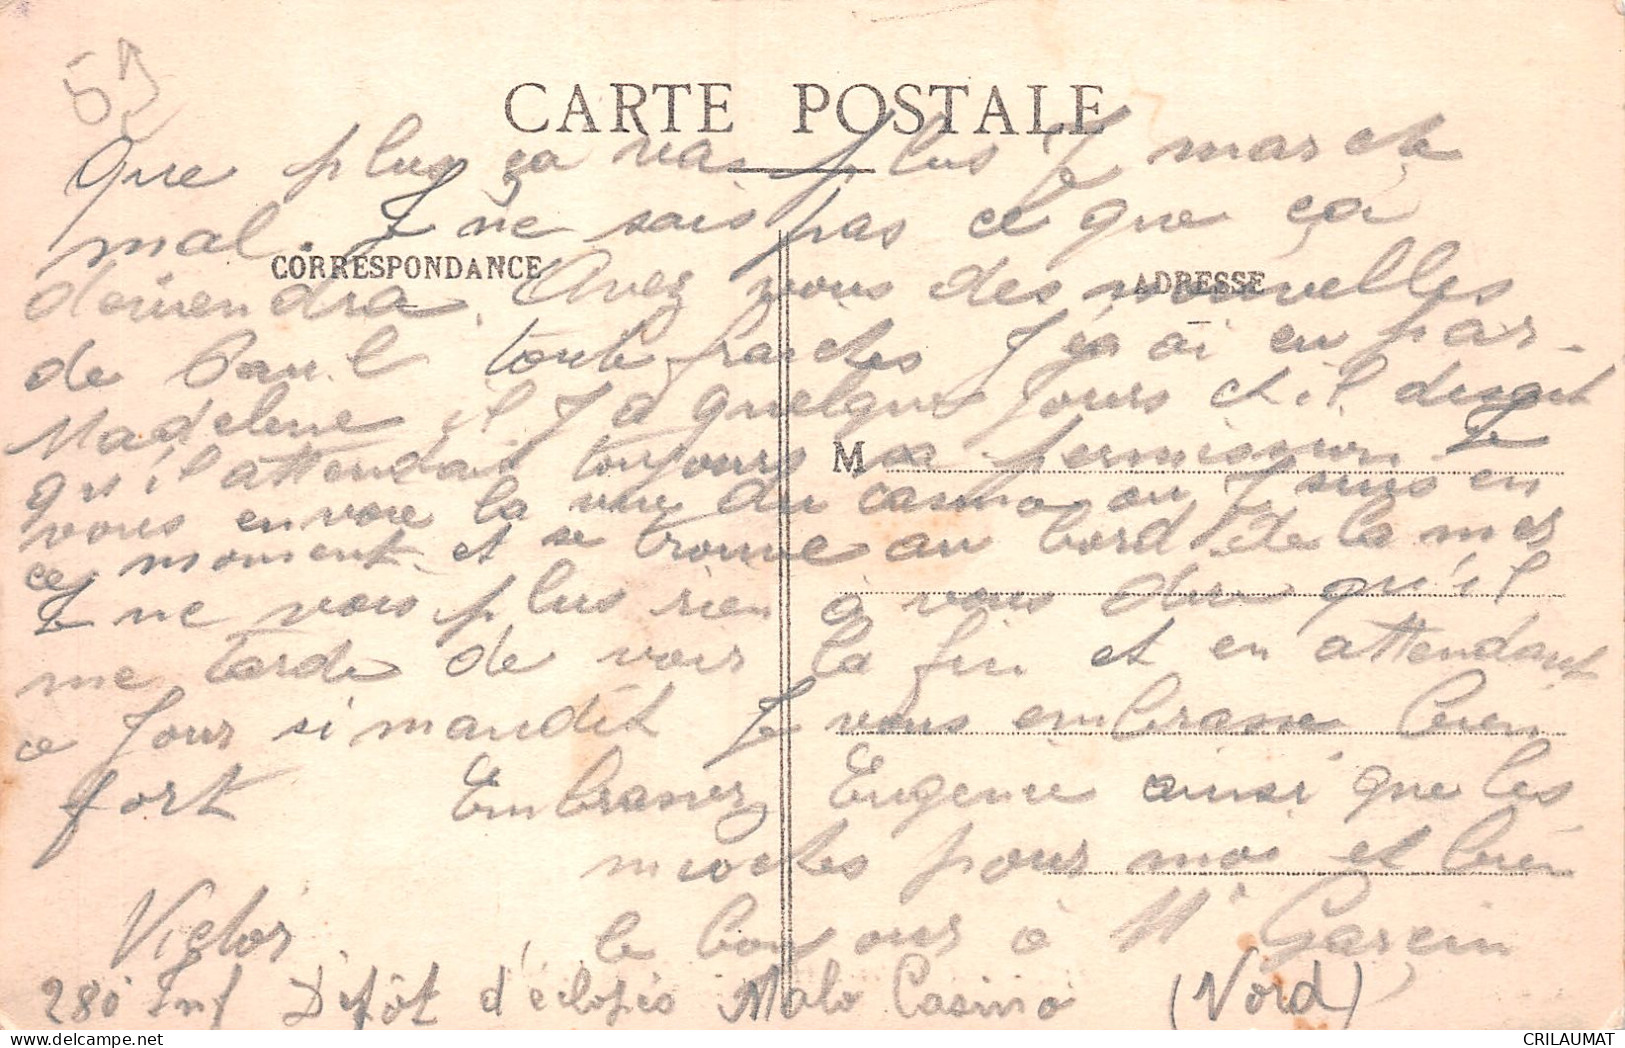 59
CARTE POSTALE
Que plus ça va plus Je marche
mal. Je ne sais pas ce que ça
CORRESPONDANCE
ADRESSE
deviendra. Avez vous des nouvelles
de Paul toute fraiches J'en ai eu par
Madelene il y a quelques Jours et il disait
qu'il attendait toujours sa permission Je
M
vous envoie la vue du casino ou Je suis en
ce moment et se trouve au bord de la mer
Je ne vois plus rien à vous dire qu'il
me tarde de voir la fin et en attendant
ce Jour si maudit Je vous embrasse bien
fort Embrassez Eugenie ainsi que les
mioches pour moi et bien
le bonjour à Mr Garcin
Victor
280 Inf Dépôt d'éclopés Malo Casino (Nord)
CRILAUMAT